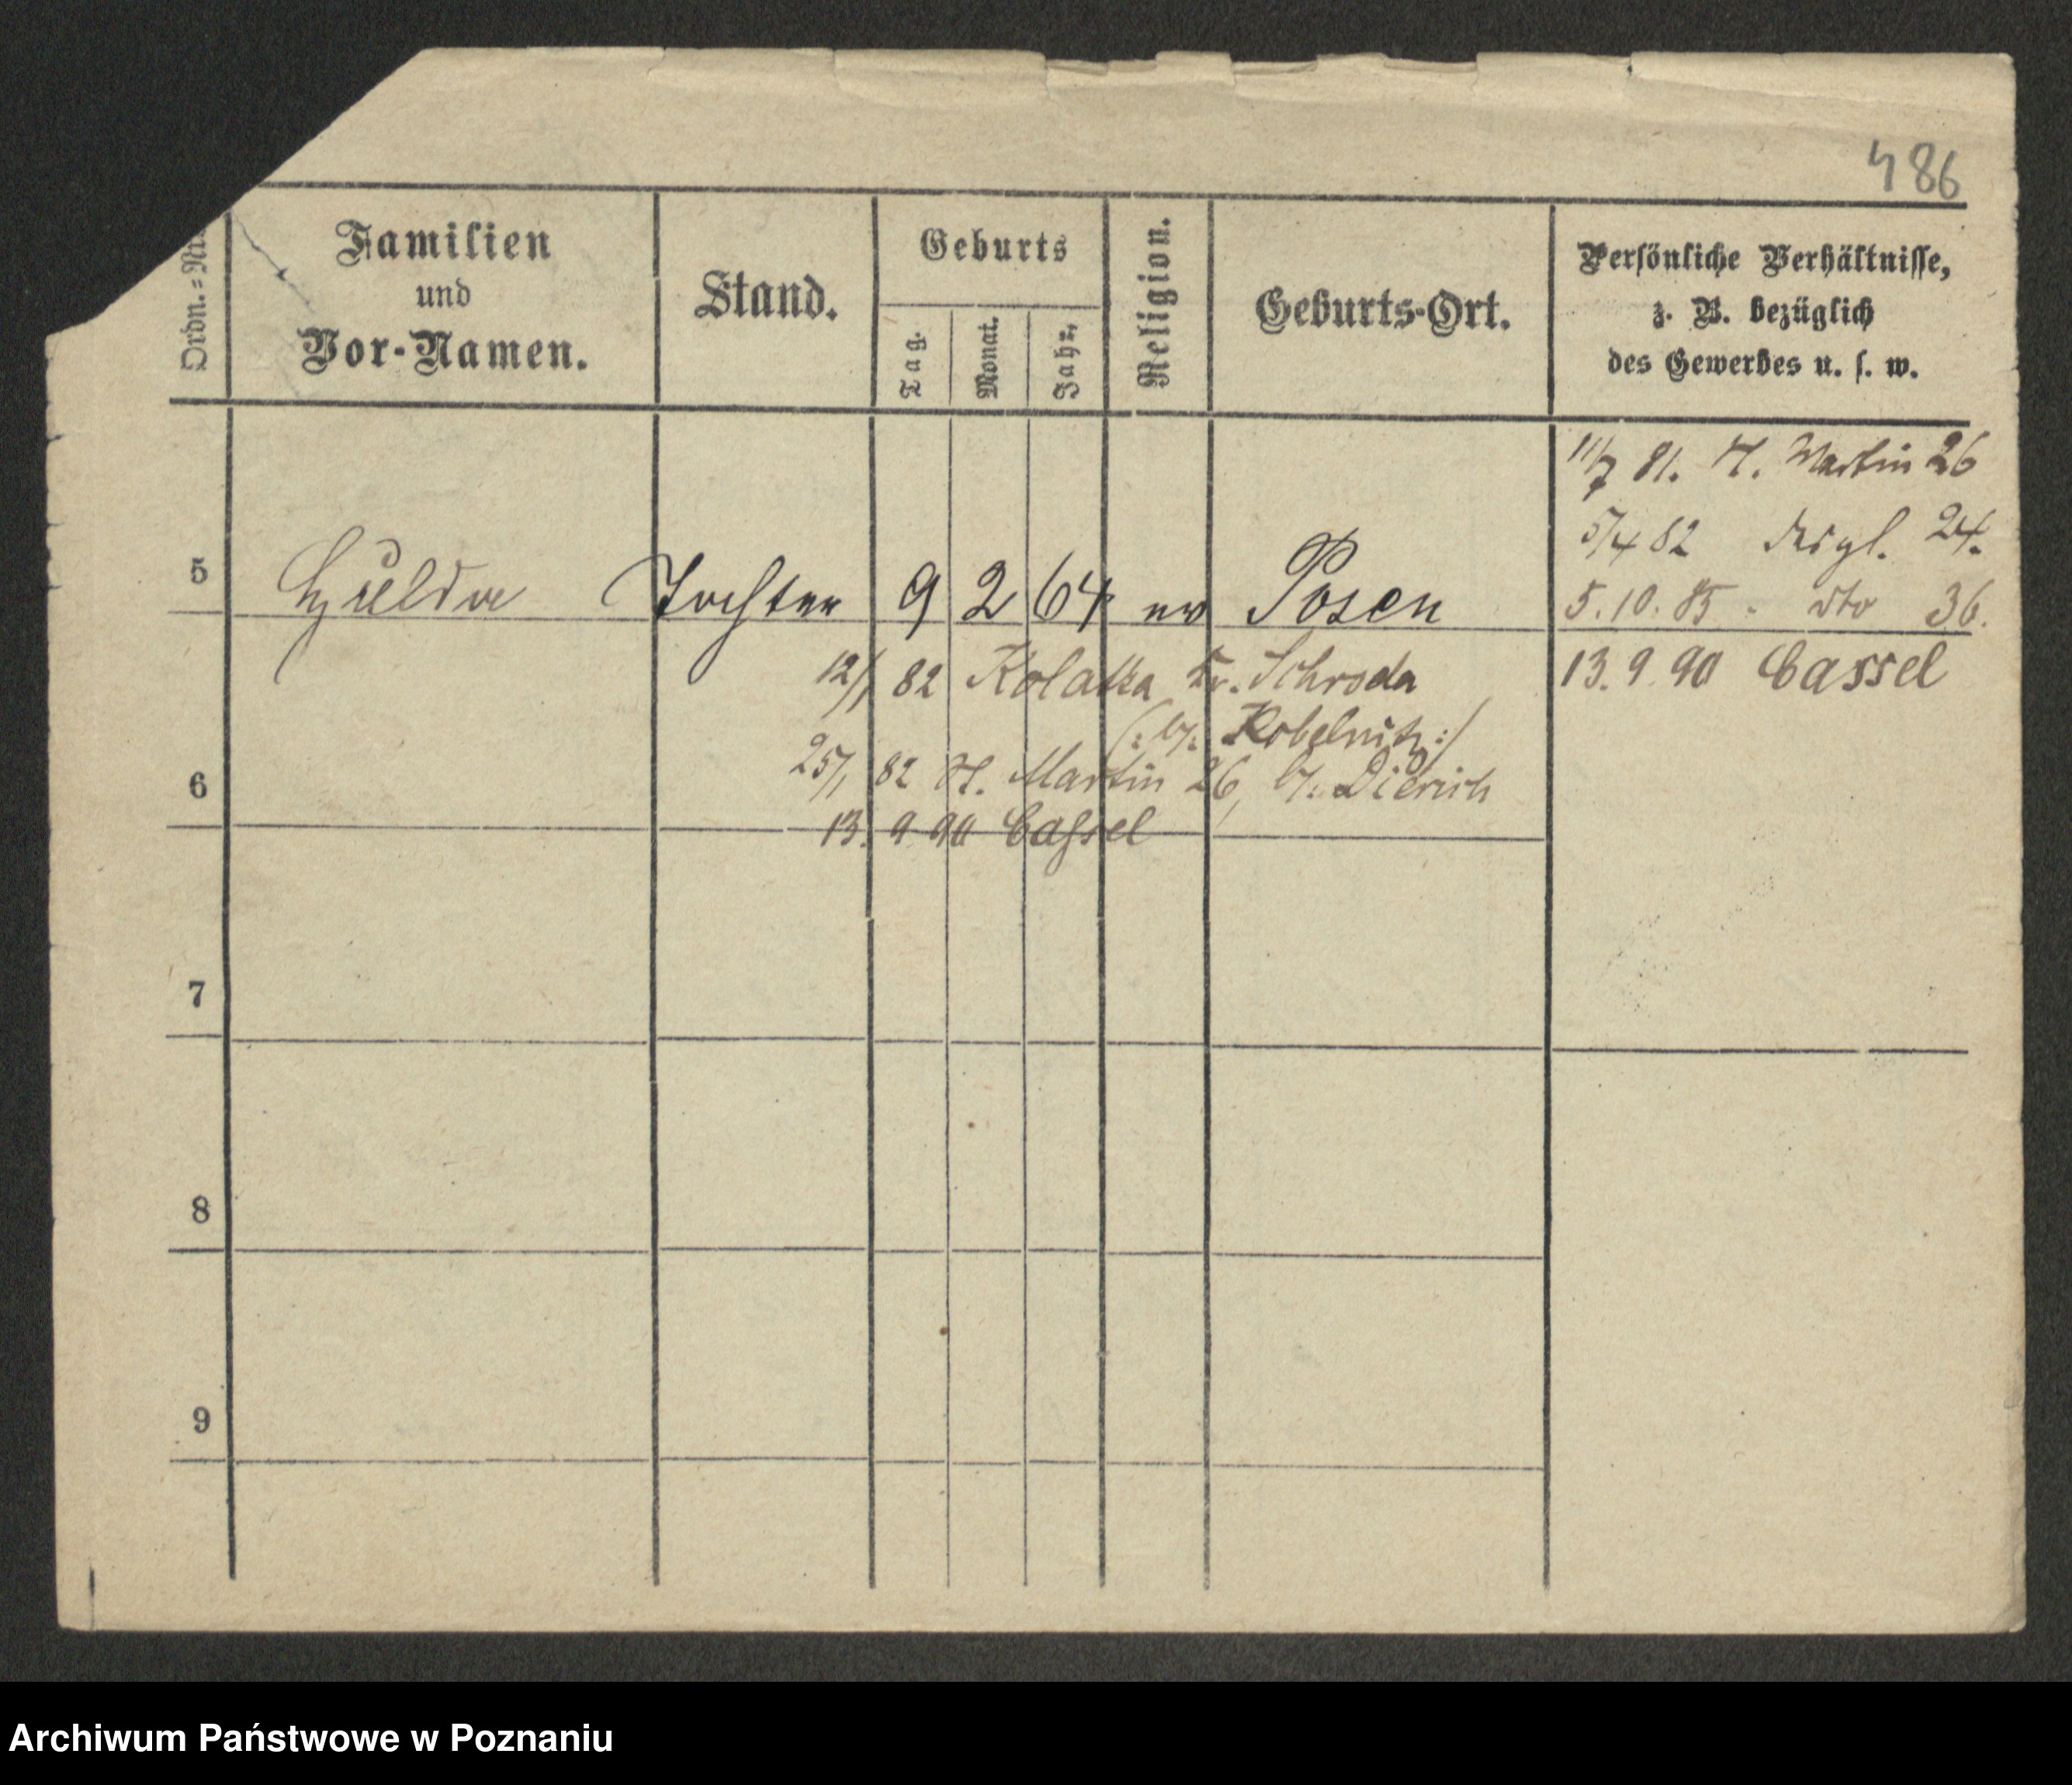 486
Ordn.=Nr.
Familien
und
Vor-Namen.
Stand.
Geburts
Tag.
Monat.
Jahr.
Religion.
Geburts-Ort.
Persönliche Verhältnisse,
z. B. bezüglich
des Gewerbes u. s. w.
11/7 81. St. Martin 26
5/4 82 desgl. 24.
5 Hulda Tochter 9 2 64 ev Posen
5. 10. 85. dto 36.
13. 9. 90 Cassel
12/1 82 Kolatka Kr. Schroda
(: b/. Kobelnitz :/
25/1 82 St. Martin 26, b/. Dierich
6
13. 9 90 Cassel
7
8
9
Archiwum Państwowe w Poznaniu